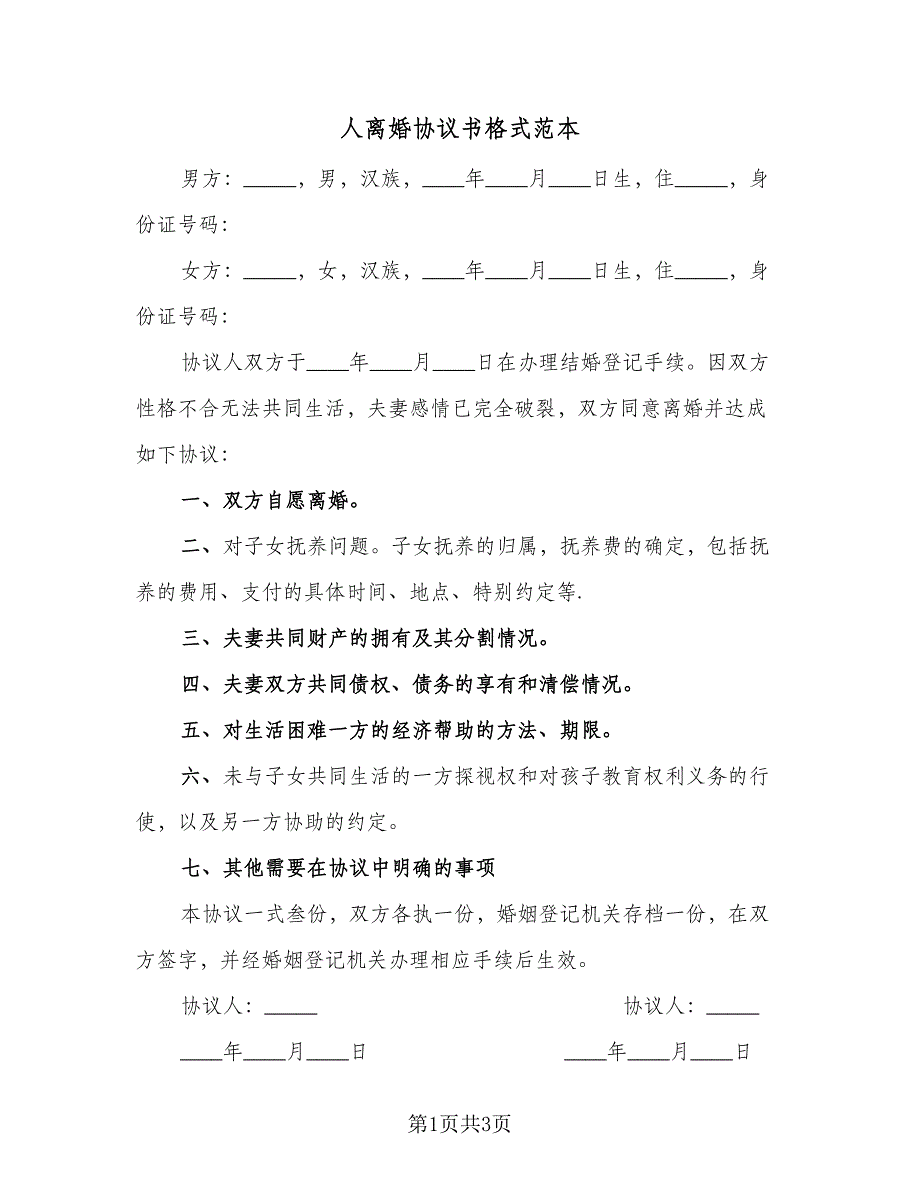 人离婚协议书格式范本
男方：_____，男，汉族，____年____月____日生，住_____，身
份证号码：
女方：_____，女，汉族，____年____月____日生，住_____，身
份证号码：
协议人双方于____年____月____日在办理结婚登记手续。因双方
性格不合无法共同生活，夫妻感情已完全破裂，双方同意离婚并达成
如下协议：
一、双方自愿离婚。
二、对子女抚养问题。子女抚养的归属，抚养费的确定，包括抚
养的费用、支付的具体时间、地点、特别约定等.
三、夫妻共同财产的拥有及其分割情况。
四、夫妻双方共同债权、债务的享有和清偿情况。
五、对生活困难一方的经济帮助的方法、期限。
六、未与子女共同生活的一方探视权和对孩子教育权利义务的行
使，以及另一方协助的约定。
七、其他需要在协议中明确的事项
本协议一式叁份，双方各执一份，婚姻登记机关存档一份，在双
方签字，并经婚姻登记机关办理相应手续后生效。
协议人：_____ 协议人：_____
____年____月____日 ____年____月____日
第1页共3页